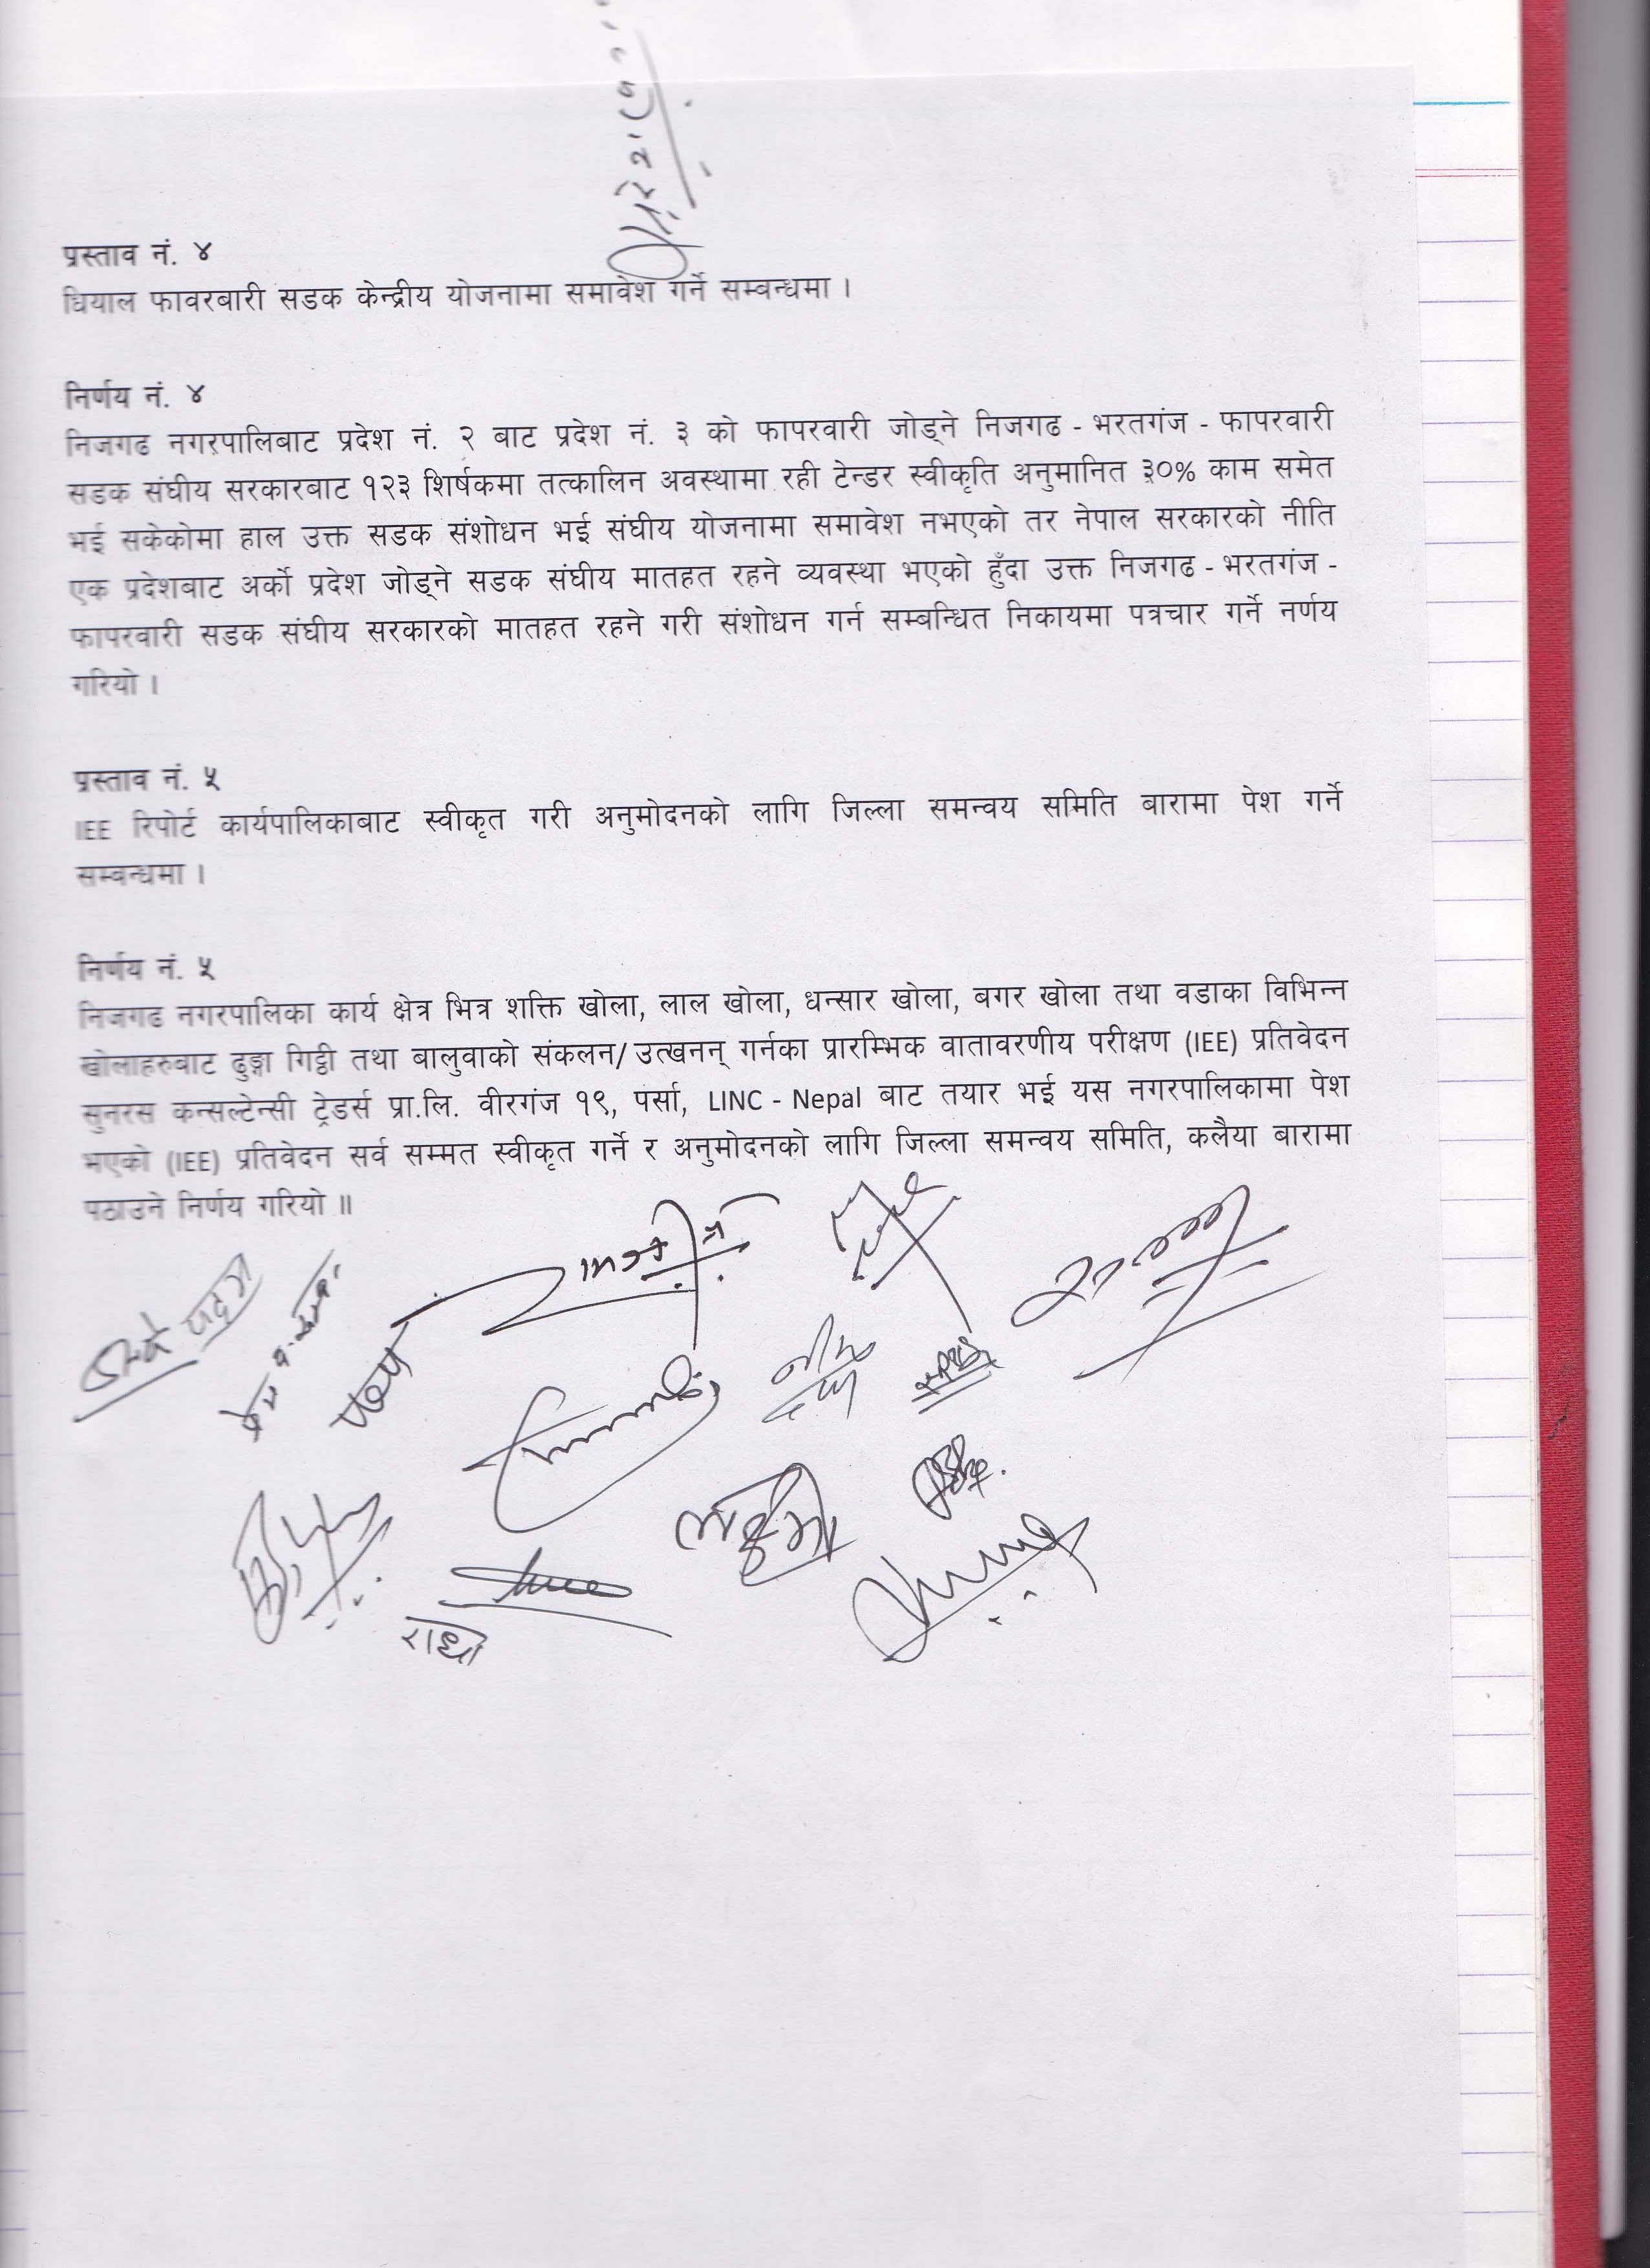 प्रस्ताव नं. ४
धियाल फावरबारी सडक केन्द्रीय योजनामा समावेश गर्ने सम्बन्धमा ।
निर्णय नं. ४
निजगढ नगरपालिबाट प्रदेश नं. २ बाट प्रदेश नं. ३ को फापरवारी जोड्ने निजगढ - भरतगंज - फापरवारी
सडक संघीय सरकारबाट १२३ शिर्षकमा तत्कालिन अवस्थामा रही टेन्डर स्वीकृति अनुमानित ३०% काम समेत
भई सकेकोमा हाल उक्त सडक संशोधन भई संघीय योजनामा समावेश नभएको तर नेपाल सरकारको नीति
एक प्रदेशबाट अर्को प्रदेश जोड्ने सडक संघीय मातहत रहने व्यवस्था भएको हुँदा उक्त निजगढ - भरतगंज -
फापरवारी सडक संघीय सरकारको मातहत रहने गरी संशोधन गर्न सम्बन्धित निकायमा पत्रचार गर्ने नर्णय
गरियो ।
प्रस्ताव नं. ५
IEE रिपोर्ट कार्यपालिकाबाट स्वीकृत गरी अनुमोदनको लागि जिल्ला समन्वय समिति बारामा पेश गर्ने
सम्बन्धमा ।
निर्णय नं. ५
निजगढ नगरपालिका कार्य क्षेत्र भित्र शक्ति खोला, लाल खोला, धन्सार खोला, बगर खोला तथा वडाका विभिन्न
खोलाहरुबाट ढुङ्गा गिट्टी तथा बालुवाको संकलन/ उत्खनन् गर्नका प्रारम्भिक वातावरणीय परीक्षण (IEE) प्रतिवेदन
सुनरस कन्सल्टेन्सी ट्रेडर्स प्रा.लि. वीरगंज १९, पर्सा, LINC - Nepal बाट तयार भई यस नगरपालिकामा पेश
भएको (IEE) प्रतिवेदन सर्व सम्मत स्वीकृत गर्ने र अनुमोदनको लागि जिल्ला समन्वय समिति, कलैया बारामा
पठाउने निर्णय गरियो ॥
राधा